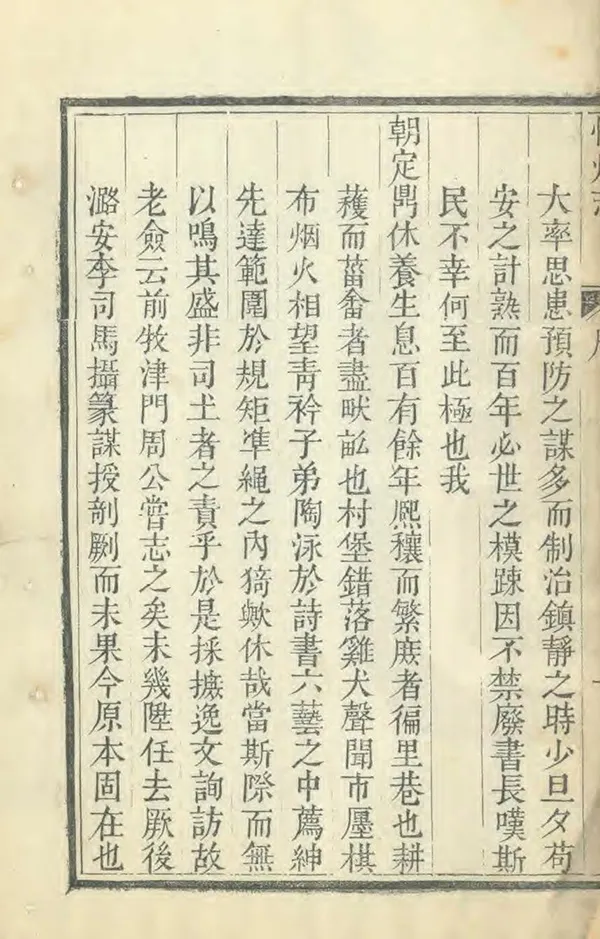 大率思患預防之謀多而制治鎮靜之時少旦夕苟
安之計熟而百年必世之模踈因不禁廢書長嘆斯
民不幸何至此極也我
朝定鼎休養生息百有餘年熈穰而繁庶者徧里巷也耕
穫而菑畬者盡畎畆也村堡錯落雞犬聲聞市廛棋
布烟火相望青衿子弟陶泳於詩書六藝之中薦紳
先達範圍於規矩凖繩之內猗歟休哉當斯際而無
以鳴其盛非司土者之責乎於是採摭逸文詢訪故
老僉云前牧津門周公嘗志之矣未幾陞任去厥後
潞安李司馬攝篆謀授剞劂而未果今原本固在也